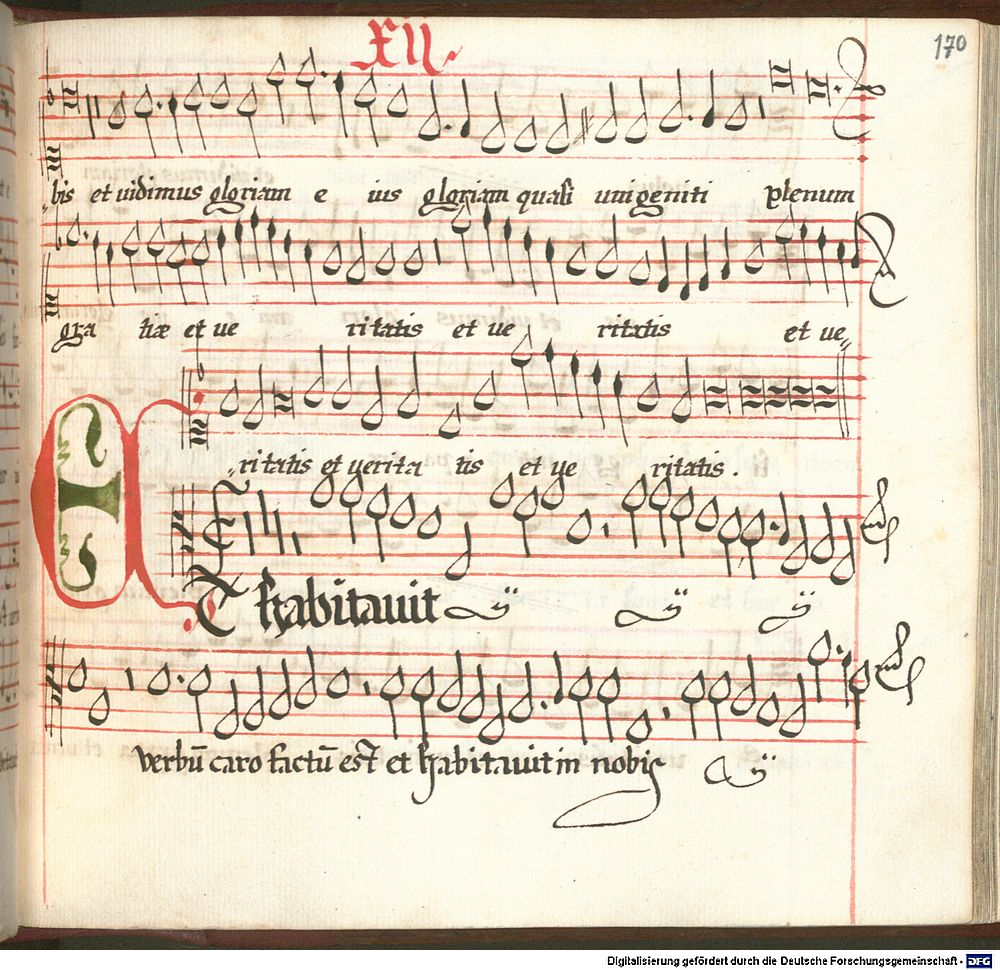 XII
170
bis et uidimus gloriam e ius gloriam quasi unigeniti plenum
gra tiæ et ue ritatis et ue ritatis et ue
ritatis et uerita tis et ue ritatis.
Et habitauit ij ij ij
verbū caro factū est et habitauit in nobis ij
Digitalisierung gefördert durch die Deutsche Forschungsgemeinschaft - DFG